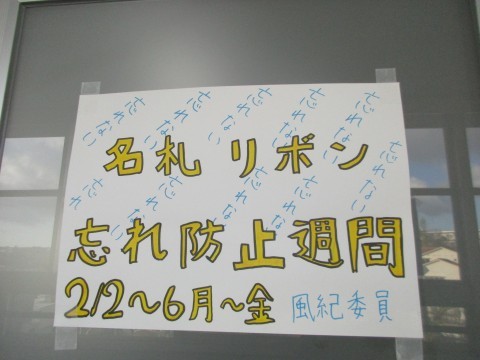 忘れない 忘れない 忘れない 忘れない 忘れない
名札 リボン
忘れ 忘れない 忘れない 忘れな 忘れない
忘れ防止週間
2/2～6月～金 風紀委員